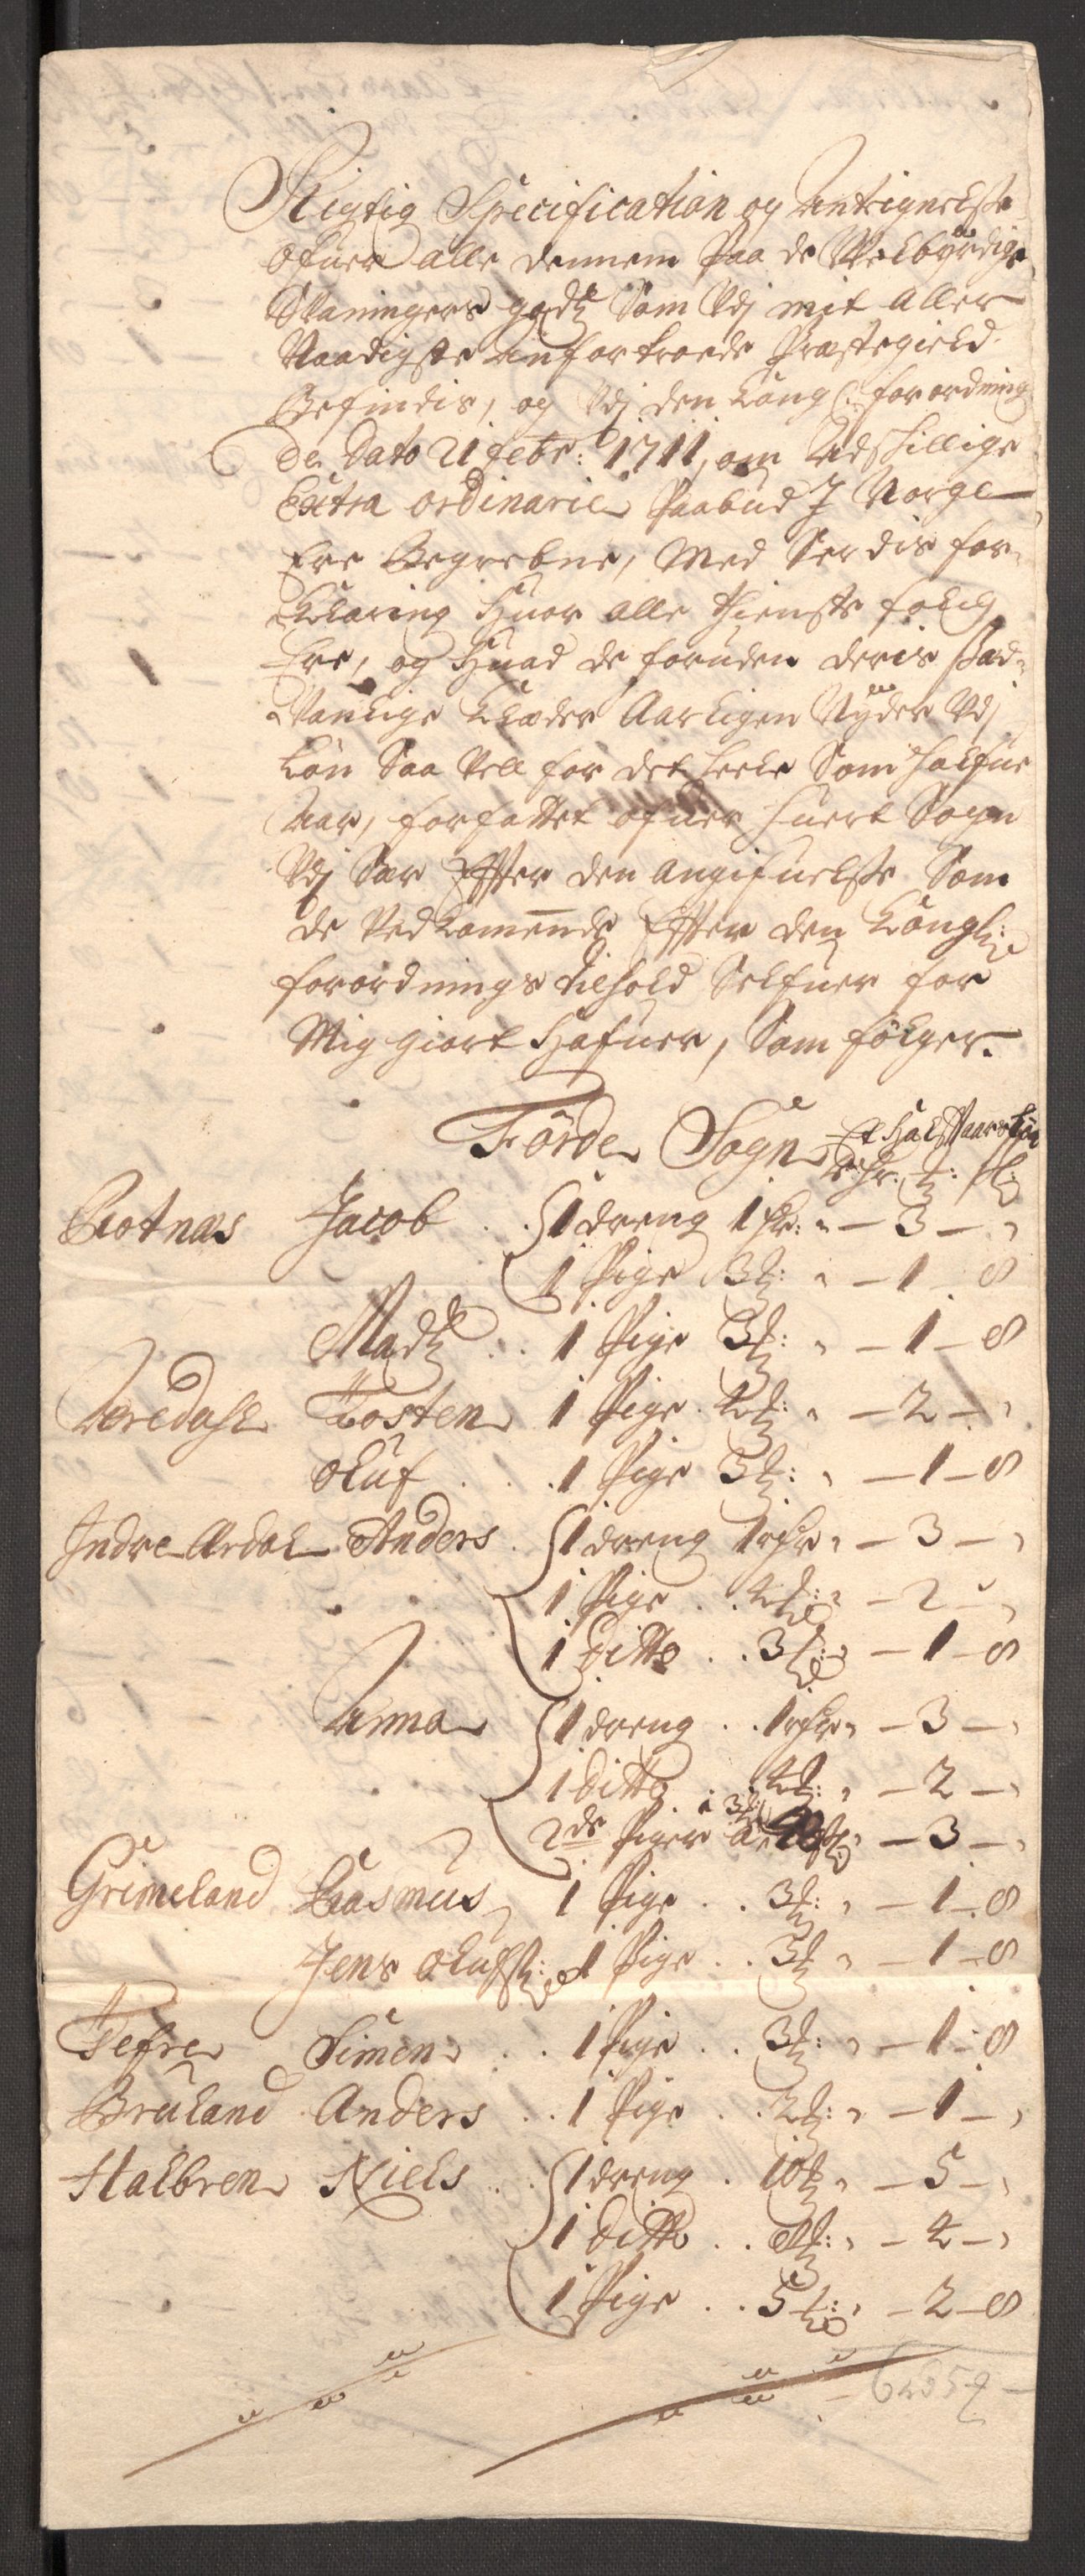 Rigtig Specification og Anteignelsse
Ofuer alle dennem Paa de Welbyrdige
Danningers godtz Som Vdj mit Aller
Naadigste anfortroede Præstegield
Befindis, og Vdj den Kongl: forordning
De Dato 21 Febr: 1711, om Adskillige
Extra ordinarie Paabud J Norge
Ere Begrebne, Med Serdis for-
Klaring Huor alle thieniste folch
Ere, og Huad de foruden deris Sæd-
Vanlige Klæder Aarligen Nyder Vdj
Løn Saa Vell for det heele Som halfue
Aar, forfattet ofuer Huert Sogn
Vdj Sær Effter den angifuelsse Som
de Vedkomende Effter den Kongl:
forordnings tilhold Selfuer for
Mig giort Hafuer, Som følger.
Förde Sogn Et Halft Aars Løn
Rdr: ℔: ß:
Rotnæs Jacob 1 dreng 1 Rdr: - 3 -
1 Pige 3 ℔: - 1 - 8
Madtz 1 Pige 3 ℔: - 1 - 8
Aaredahl Tosten 1 Pige 4 ℔: - 2 -
Oluf 1 Pige 3 ℔: - 1 - 8
Indre Ardal Anders 1 dreng 1 Rdr - 3 -
1 Pige 4 ℔: - 2 -
1 ditto 3 ℔: - 1 - 8
Anna 1 dreng 1 Rdr - 3 -
1 ditto 4 ℔: - 2 -
2de Piger a 3 ℔: - 3 -
Grimeland Rasmus 1 Pige 3 ℔: - 1 - 8
Jens Olufs: 1 Pige 3 ℔ - 1 - 8
Tefre Simen 1 Pige 3 ℔: - 1 - 8
Bruland Anders 1 Pige 2 ℔: - 1 -
Halbren Niels 1 dreng 10 ℔ - 5 -
1 ditto 8 ℔: - 4 -
1 Pige 5 ℔: - 2 - 8